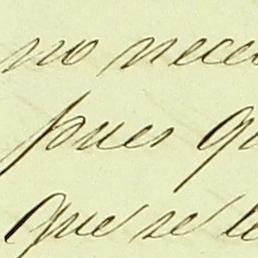 no nece
pues qu
que se le